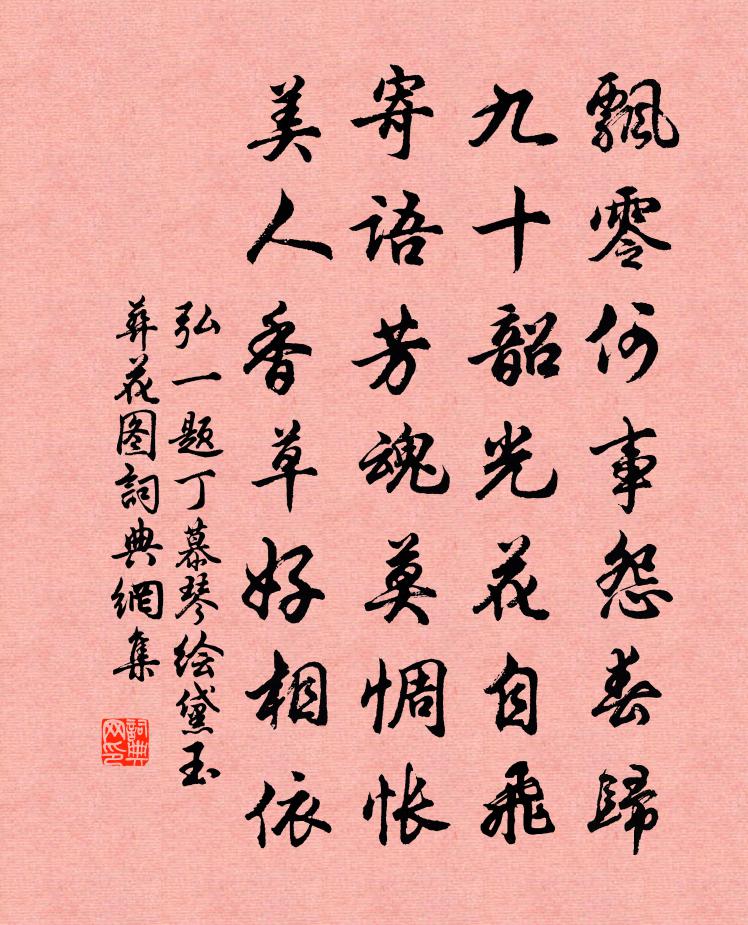 飄零何事怨春歸
九十韶光花自飛
寄語芳魂莫惆悵
美人香草好相依
弘一题丁慕琴绘黛玉
葬花图詞典網集
詞典网印